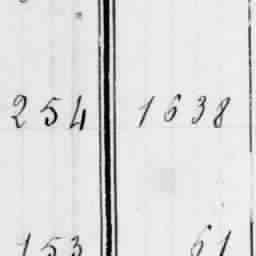 254 1638
153 61